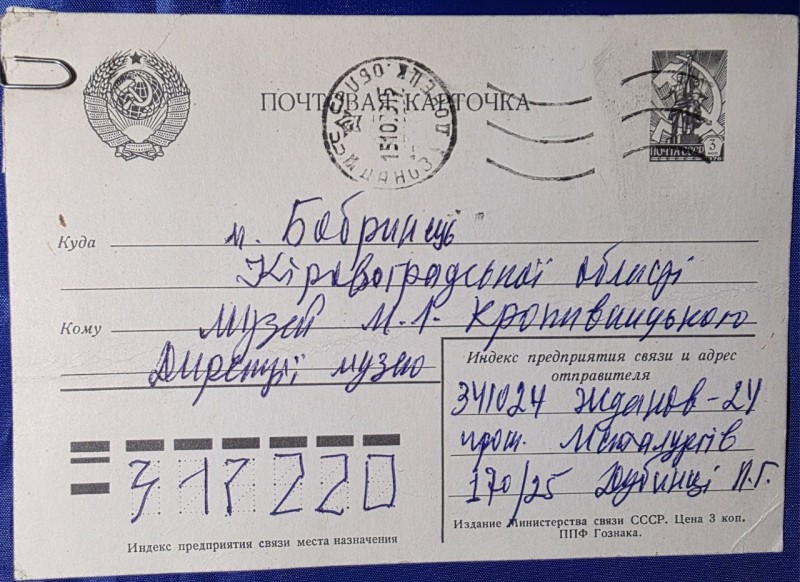 ПОЧТОВАЯ КАРТОЧКА
ПОЧТА СССР 3
Куда м. Бобринець
Кіровоградської області
Кому Музей М.Л. Кропивницького
Дирекції музею
Индекс предприятия связи и адрес
отправителя
341024 Жданов-24
прош. Металургів
170/25 Дубинці П.Г.
317220
Индекс предприятия связи места назначения
Издание Министерства связи СССР. Цена 3 коп.
ППФ Гознака.